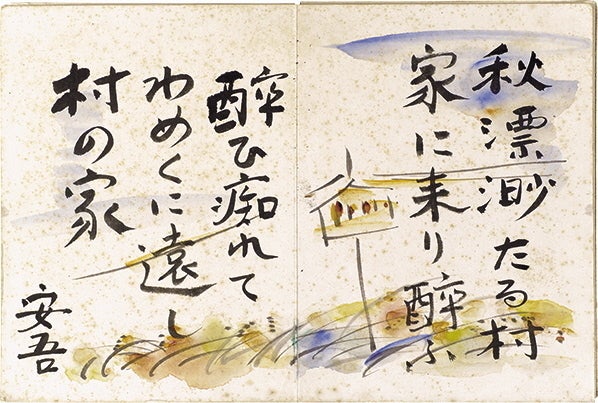 秋漂渺たる村
家に来り酔ふ
酔ひ痴れて
わめくに遠し
村の家
安吾